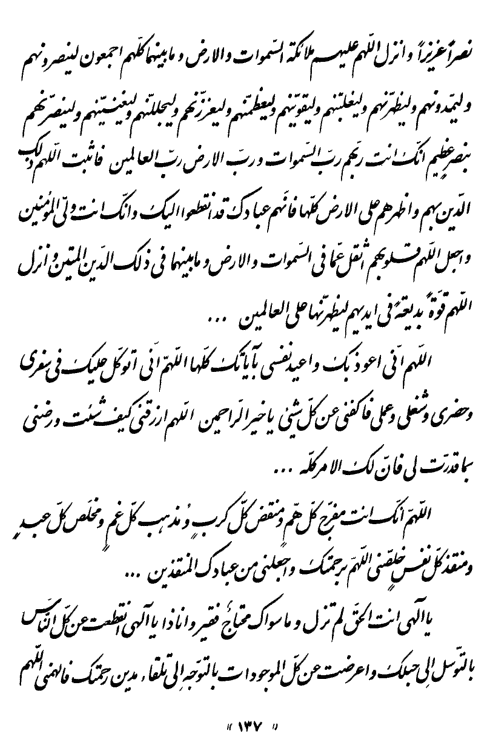 نصراً عزيزاً وانزل اللّهم عليهم ملائكة السّموات والارض و ما بينهما كلّهم اجمعون لينصرونهم
وليمدّونهم وليظهرّنهم وليغلبنّهم وليقوّينّهم وليعظّمنّهم وليعزّزنّهم وليجلّلنّهم وليغنينّهم ولينصرنّهم
بنصر عظيم انّك انت ربّهم ربّ السّموات و ربّ الارض ربّ العالمين فاثبت اللّهم ذلك
الدّين بهم واظهرهم على الارض كلّها فانّهم عبادك قد انقطعوا اليك وانّك انت وليّ المؤمنين
واجعل اللّهم قلوبهم اثقل عمّا في السّموات والارض و ما بينهما في ذلك الدّين المتين و انزل
اللّهم قوّة بديعة في ايديهم ليظهرنّها على العالمين ...
اللهم انّي اعوذ بك واعيذ نفسي بآياتك كلّها اللّهمّ انّي اتوكّل عليك في سفري
وحضري و شغلي و عملي فاكفني عن كلّ شيئ يا خير الرّاحمين اللهم ارزقني كيف شئت ورضّني
بما قدّرت لي فانّ لك الامر كلّه ...
اللّهمّ انّك انت مفرّج كلّ همّ و منفّض كلّ كرب و مذهب كلّ غم و مخلّص كلّ عبد
ومنقذ كلّ نفس خلّصني اللّهمّ برحمتك واجعلني من عبادك المنقذين ...
يا الهي انت الحقّ لم تزل و ما سواك محتاج فقير وانا ذا يا الهي انقطعت عن كلّ النّاس
بالتّوسّل الى حبلك واعرضت عن كلّ الموجودات بالتّوجّه الى تلقاء مدين رحمتك فالهمني اللّهم
« ١٣٧ »